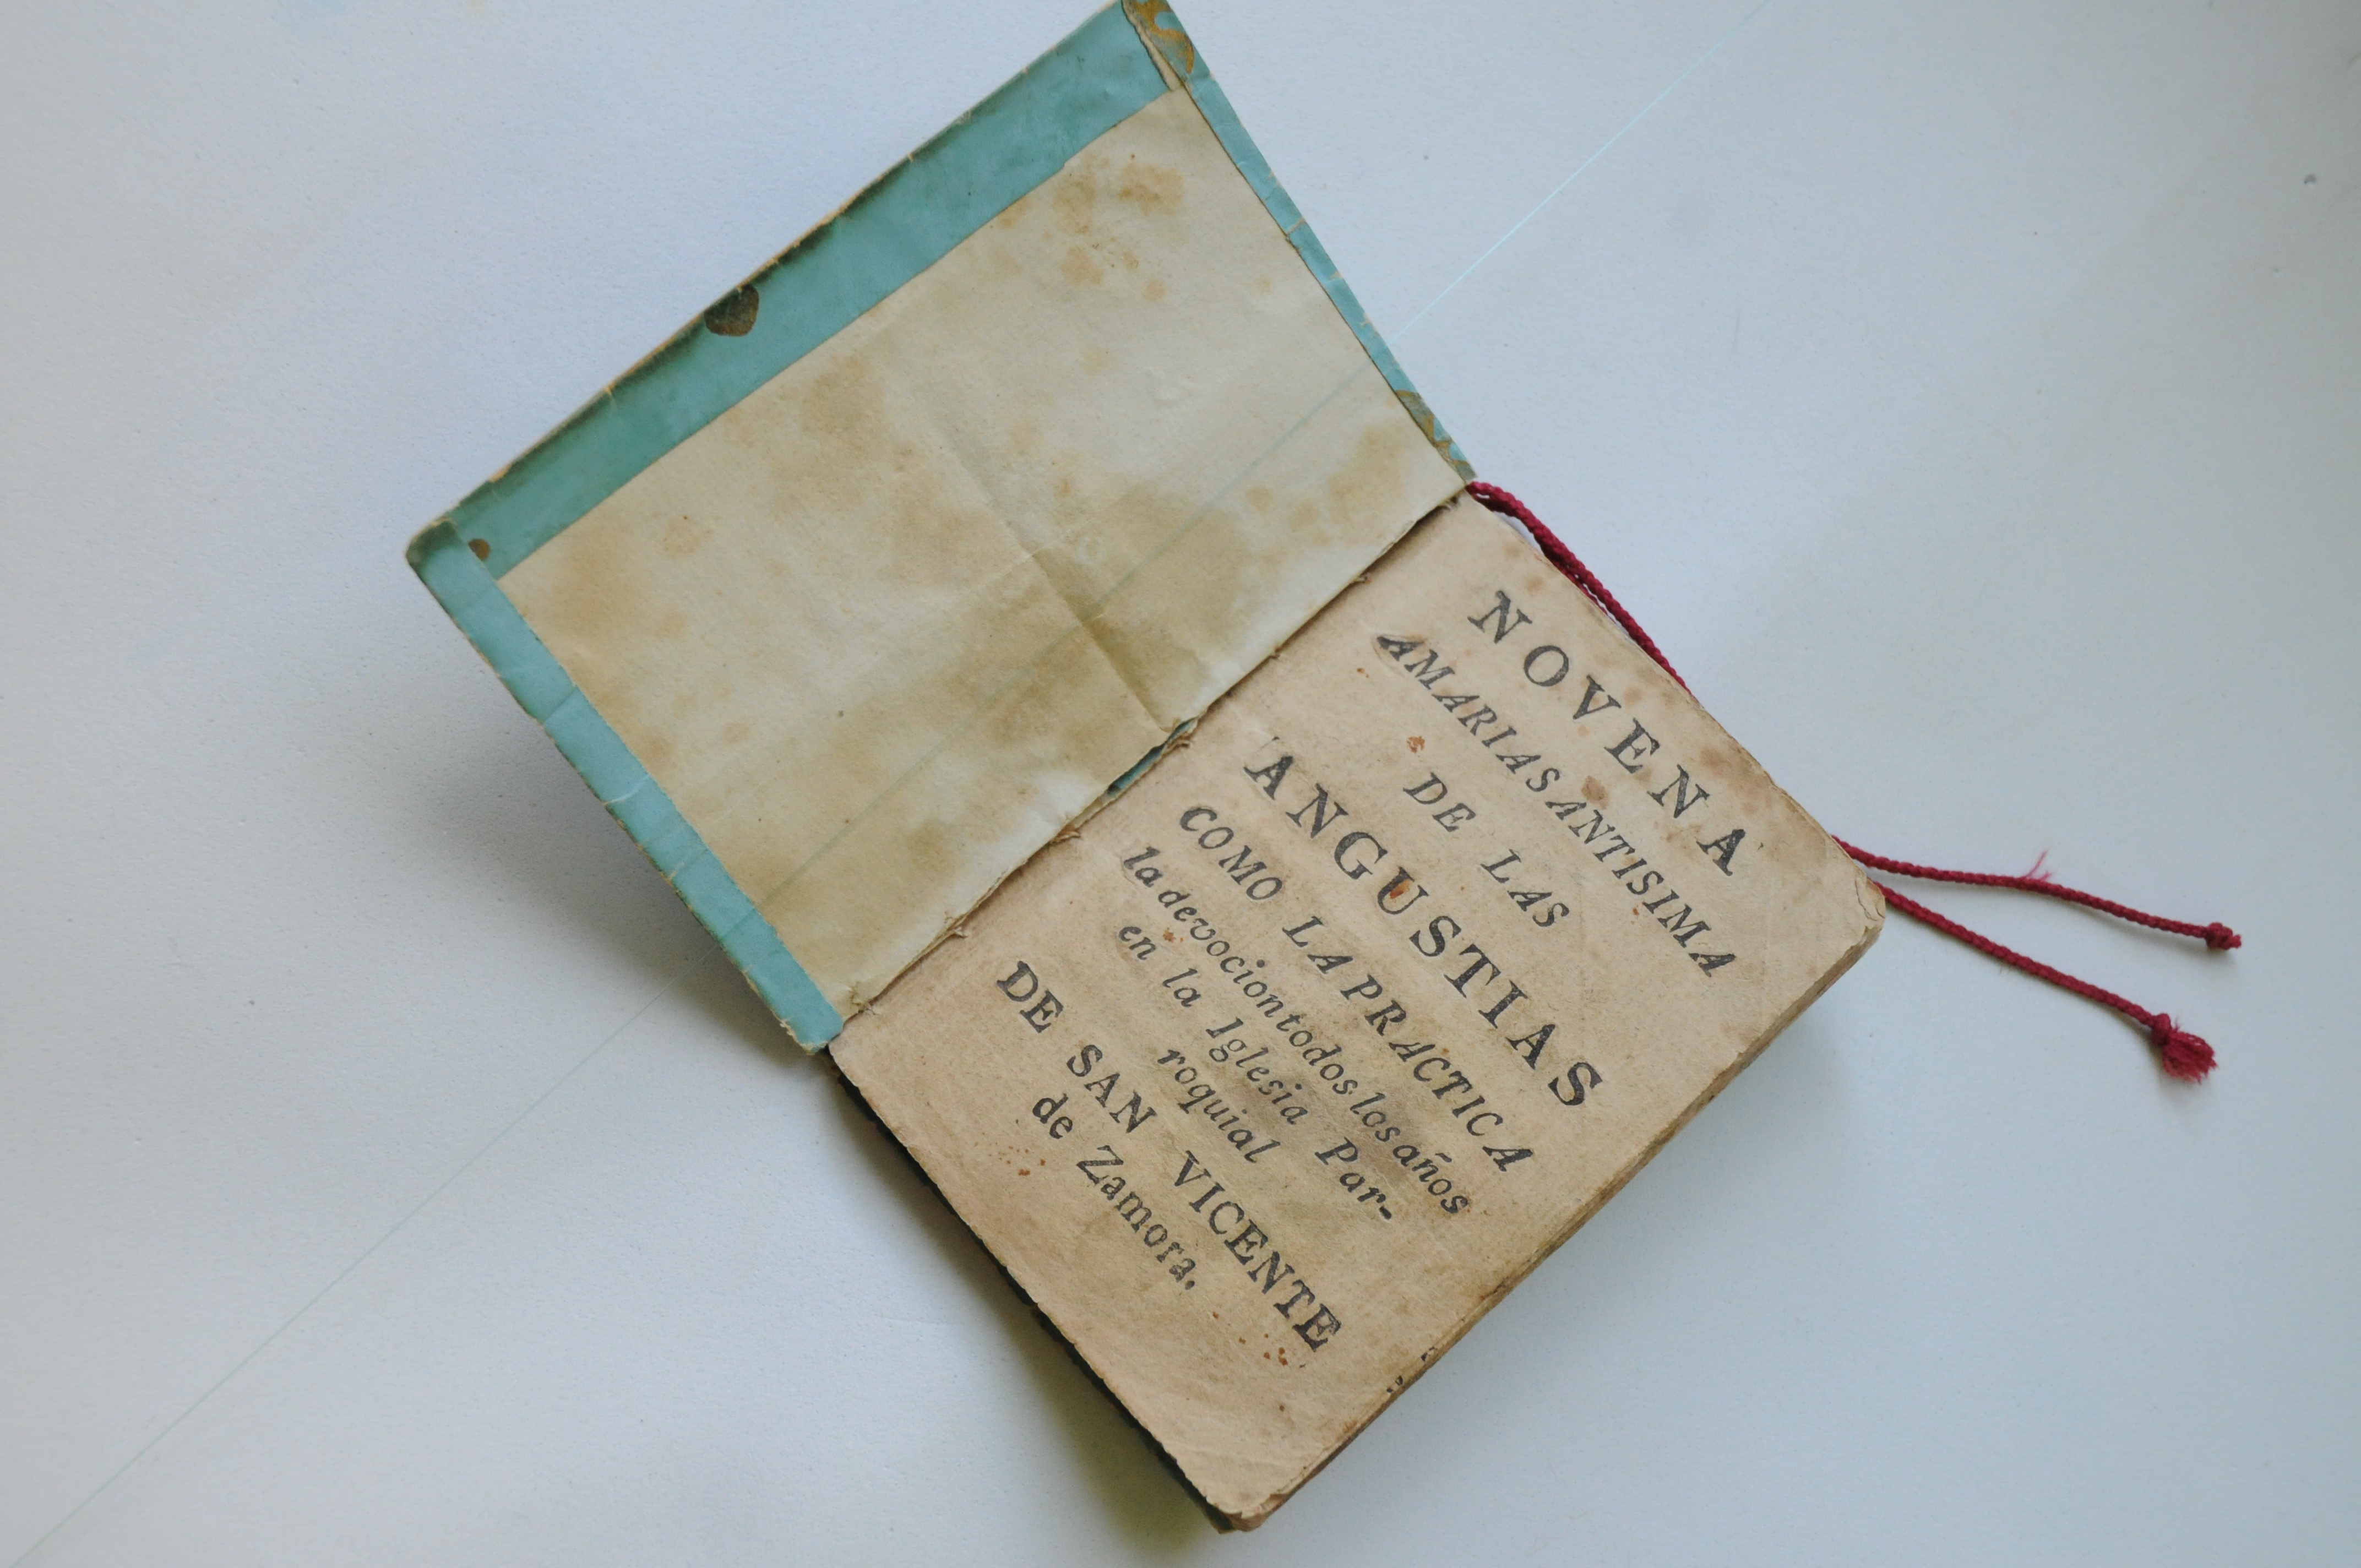 NOVENA
AMARIASANTISIMA
DE LAS
ANGUSTIAS
COMO LA PRACTICA
ladevociontodoslosaños
en la Iglesia Par-
roquial
DE SAN VICENTE
de Zamora.